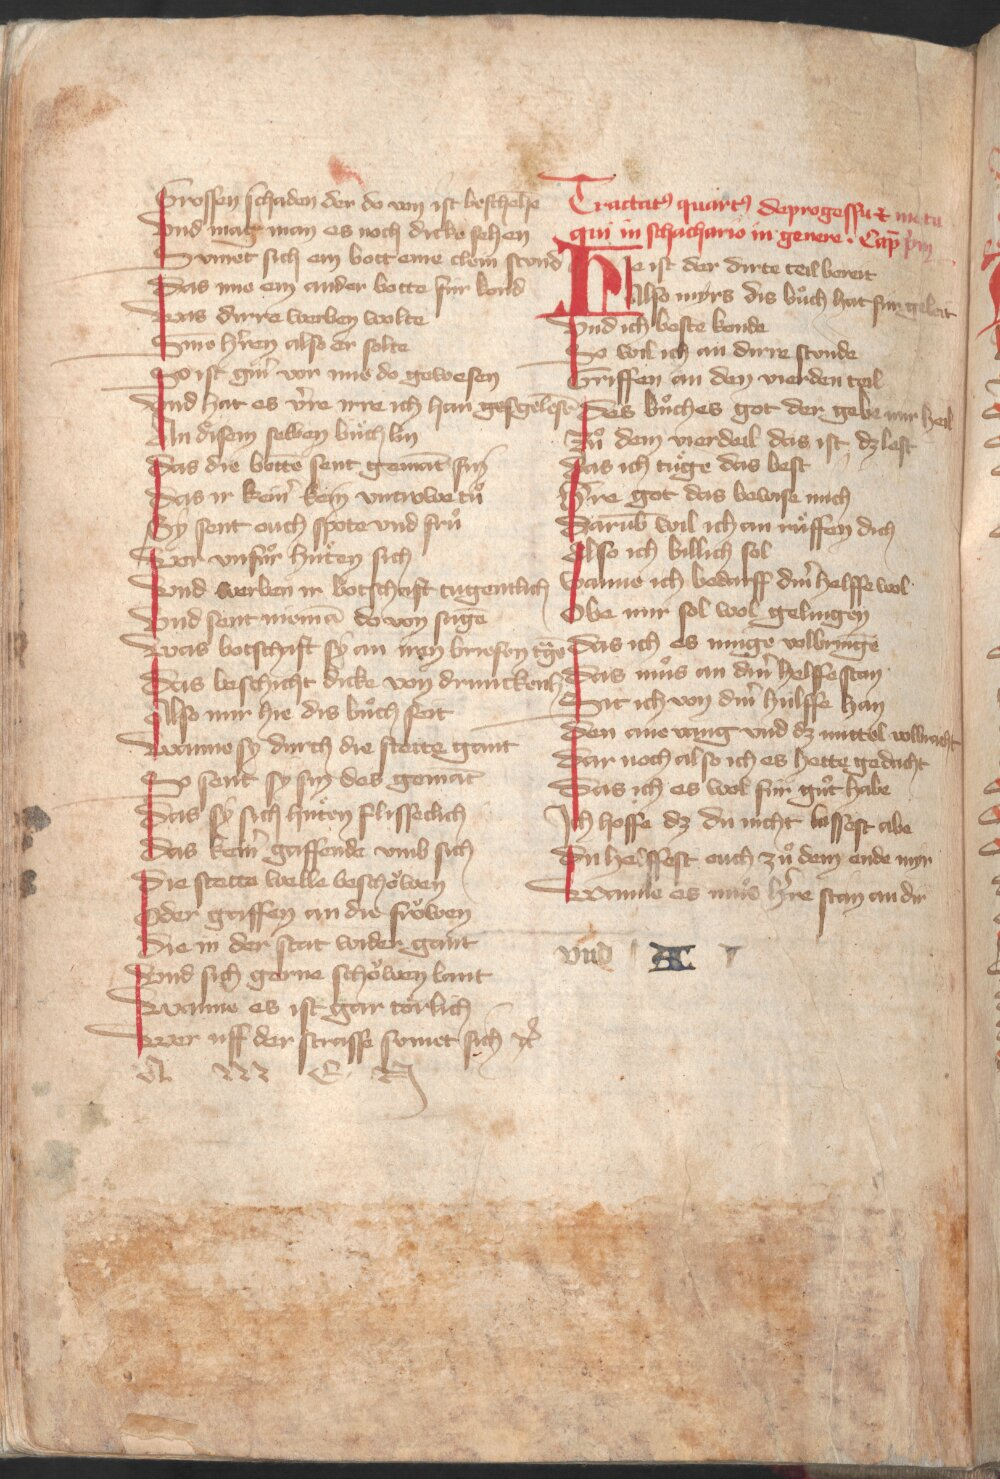 Grossen schaden der do von ist beschehē
Vnd mag man es noch dicke sehen
Sumet sich ein bott eine clein stund
Das ime ein ander botte für kond
Was dirre werben wolte
Sime h'ren also er solte
So ist gnu' vor mir do gewesen
Vnd hat es v're irre ich han geschelest
An disem selben bůch lin
Das die bottē sent gemāt sin
Das ir kein' kein vntrúwe tů
Sy sent ouch spote vnd frů
Vor vnfůr hůten sich
Vnd werben ir botschaft tugentlich
Vnd sent niemā do von sagē
Was botschaft sy an iren briefen tragē
Das beschicht dicke von drunckenh
Also mir hie dis bůch seit
Wanne sy durch die stette gant
So sent sy sin des gemāt
Das sy sich hůten flisseclich
Das kein' gaffende vmb sich
Die stette welle beschǒwen
Oder gaffen an die frǒwen
Die in der stat wider gant
Vnd sich gerne schǒwen lant
Wanne es ist gar torlich
Wer uff der strasse sumet sich
A M E N
Tractatꝰ quartꝰ de progessu ⁊ motu
qui in schachario in genere . Cap̄ p̄m
Hie ist der dirte teil bereit
Also myrs dis bůch hat fur geleit
Vnd ich beste konde
So wil ich an dirre stonde
Griffen an den vierden teil
Des bůches got der gebe mir heil
Zů dem vierdeil das ist dz lest
Das ich tůge das best
H're got das bewise mich
Darūb wil ich an růffen dich
Also ich billich sol
Wanne ich bedarff din' helffe wol
Obe mir sol wol gelingen
Das ich es muge volbringē
Das můs an din' helffe stan
Sit ich von din' hulffe han
Den ane vang vnd dz mittel vollbracht
Dar noch also ich es hette gedacht
Das ich es wol für gůt habe
Ich hoffe dz du nicht lassest abe
Du helffest ouch zů dem ende myr
Wanne es můs h're stan an dir
vnd